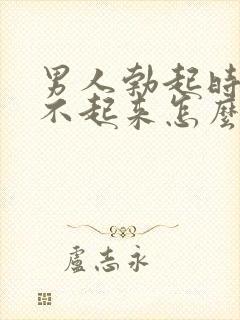 男人勃起時
不起來怎麼
盧志永